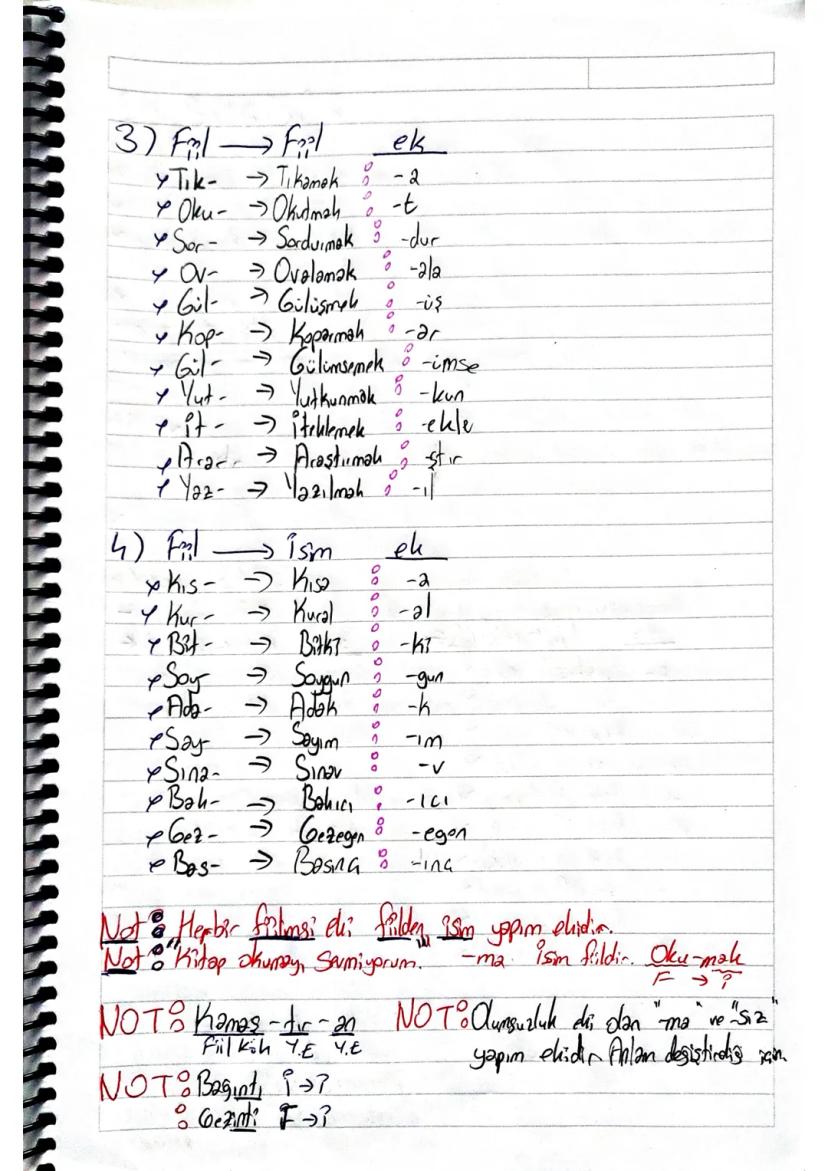 3) Fiil → Fiil ek
Tık- → Tıkamak : -a
Oku- → Okutmak : -t
Sor- → Sordurmak : -dur
Ov- → Ovalamak : -ala
Gül- → Gülüşmek : -üş
Kop- → Koparmak : -ar
Gül- → Gülümsemek : -imse
Yut- → Yutkunmak : -kun
İt- → İteklemek : -ekle
Ara- → Araştırmak : -ştır
Yaz- → Yazılmak : -ıl
4) Fiil → İsim ek
Kıs- → Kısa : -a
Kur- → Kural : -al
Bit- → Bitki : -ki
Soy → Soygun : -gun
Ada- → Adak : -k
Say- → Sayım : -ım
Sına- → Sınav : -v
Bak- → Bakıcı : -ıcı
Gez- → Gezegen : -egen
Bas- → Basınç : -ınç
Not: Herbir fiilimsi eki fiilden isim yapım ekidir.
Not: "Kitap okumayı sevmiyorum." -ma isim fiildir. Oku-mak
F → İ
NOT: Kamaş-tır-an NOT: Olumsuzluk eki olan "-ma" ve "-sız"
Fiil kök Y.E Y.E yapım ekidir Anlam değiştirdiği için.
NOT: Bağıntı İ→İ
: Gezinti F→İ